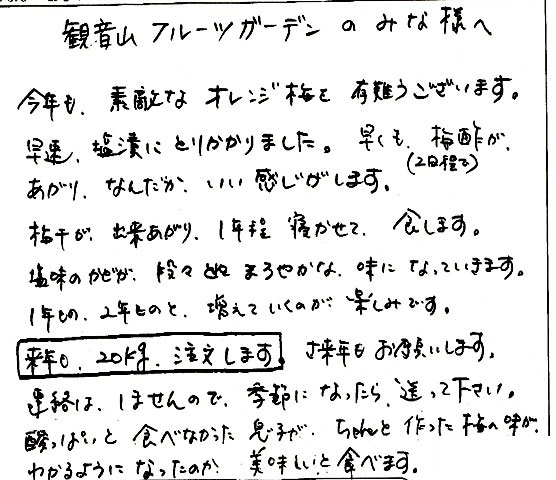 観音山フルーツガーデンのみな様へ
今年も、素敵なオレンジ梅を有難うございます。
早速、塩漬にとりかかりました。早くも、梅酢が、(2日程で)
あがり、なんだか、いい感じがします。
梅干が、出来あがり、1年程寝かせて、食します。
塩味のかどが、段々とれまろやかな、味になっていきます。
1年もの、2年ものと、増えていくのが楽しみです。
来年も、20kg、注文します。さ来年もお願いします。
連絡は、しませんので、季節になったら、送って下さい。
酸っぱいと食べなかった息子が、ちゃんと作った梅の味が、
わかるようになったのか美味しいと食べます。